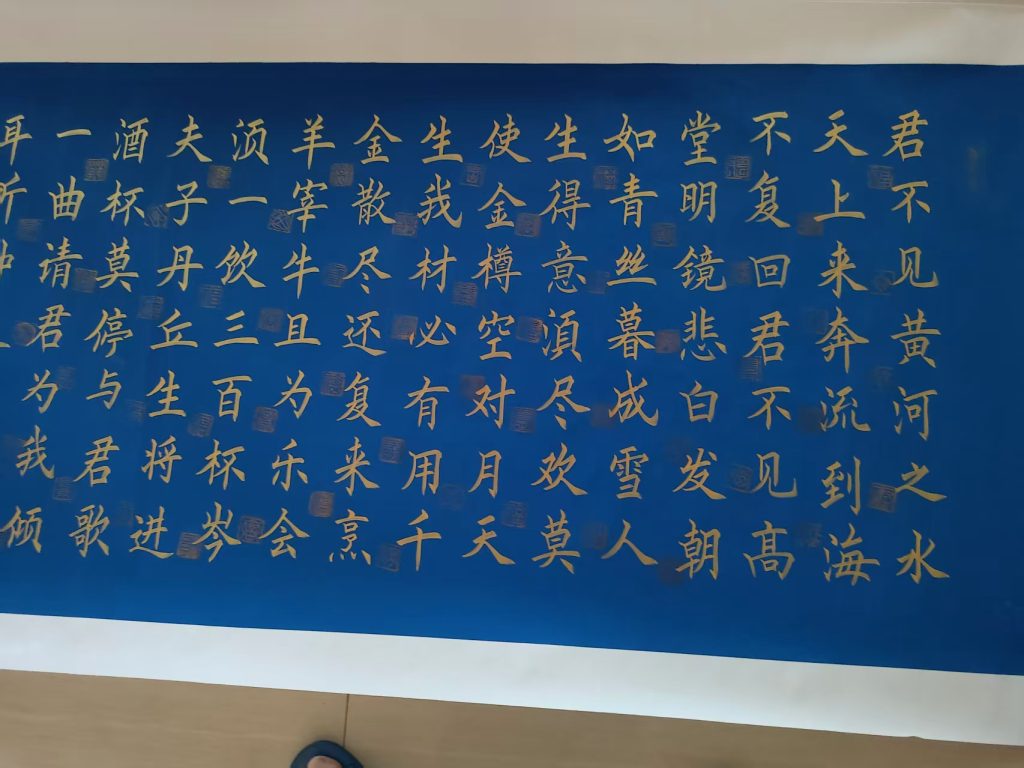 君不见黄河之水
天上来奔流到海
不复回君不见髙
堂明镜悲白发朝
如青丝暮成雪人
生得意湏尽欢莫
使金樽空对月天
生我材必有用千
金散尽还复来烹
羊宰牛且为乐会
湏一饮三百杯岑
夫子丹丘生将进
酒杯莫停与君歌
一曲请君为我倾
耳